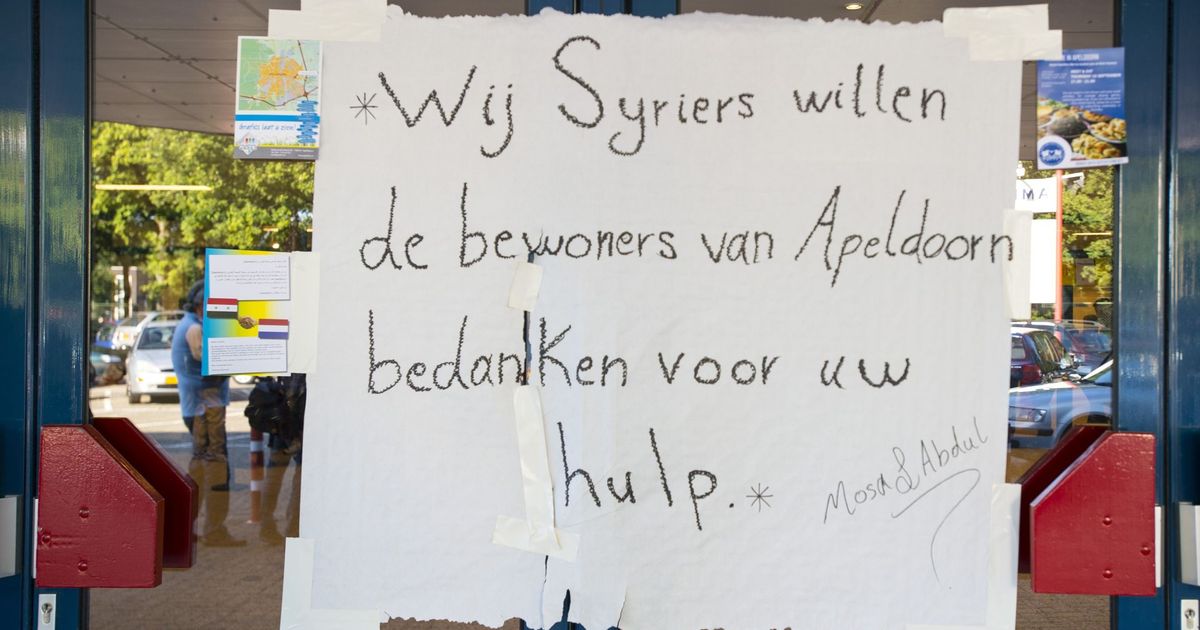 *Wij Syriers willen
de bewoners van Apeldoorn
bedanken voor uw
hulp.*
Mosa & Abdul
MA